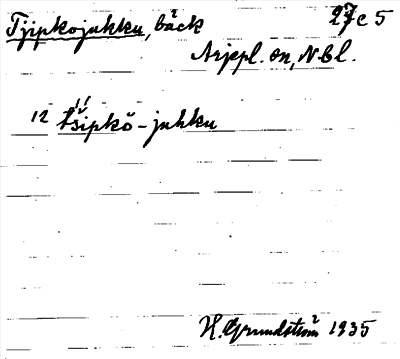 Tjipkojuhku, bäck 27c5
Arjepl. sn, Nbl.
12 t́šipkŏ-juhku
H. Grundström 1935